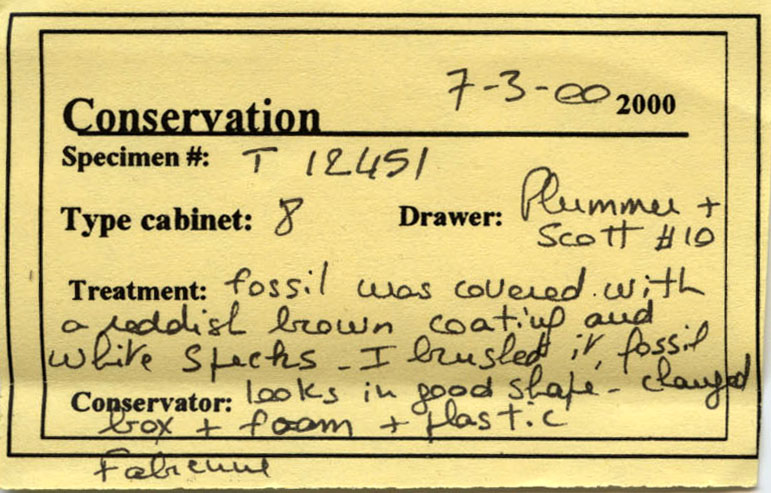 7-3-00 2000
Conservation
Specimen #: T 12451
Type cabinet: 8 Drawer: Plummer +
Scott #10
Treatment: fossil was covered with
a reddish brown coating and
white specks - I brushed it, fossil
Conservator: looks in good shape - changed
box + foam + plastic
Fabienne